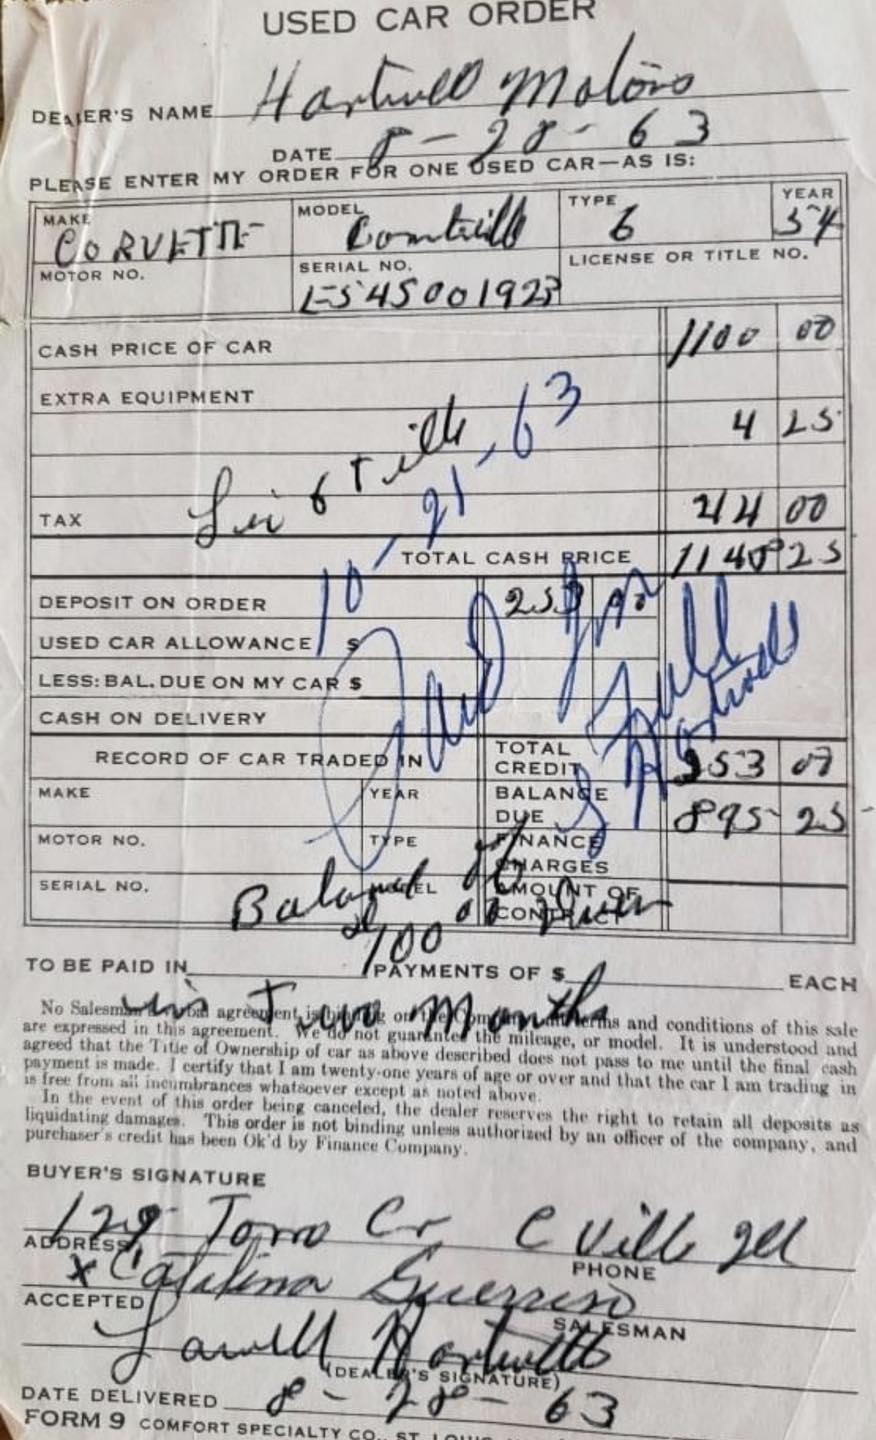 USED CAR ORDER
DEALER'S NAME Hartwell Motors
DATE 8-28-63
PLEASE ENTER MY ORDER FOR ONE USED CAR—AS IS:
MAKE MODEL TYPE YEAR
CORVETTE 6 54
MOTOR NO. SERIAL NO. LICENSE OR TITLE NO.
E54S001923
CASH PRICE OF CAR 1100 00
EXTRA EQUIPMENT
4 25
Title
TAX 44 00
TOTAL CASH PRICE 1148 25
10-21-63
DEPOSIT ON ORDER 253 00
USED CAR ALLOWANCE $
LESS: BAL. DUE ON MY CAR $
CASH ON DELIVERY
Paid In Full
Hartwell
RECORD OF CAR TRADED IN TOTAL CREDIT 253 00
MAKE YEAR BALANCE DUE 895 25
MOTOR NO. TYPE FINANCE CHARGES
SERIAL NO. MODEL AMOUNT OF CONTRACT
Balance of
TO BE PAID IN PAYMENTS OF $ EACH
in Two Months
No Salesman's verbal agreement is binding on the Company. All terms and conditions of this sale
are expressed in this agreement. We do not guarantee the mileage, or model. It is understood and
agreed that the Title of Ownership of car as above described does not pass to me until the final cash
payment is made. I certify that I am twenty-one years of age or over and that the car I am trading in
is free from all incumbrances whatsoever except as noted above.
In the event of this order being canceled, the dealer reserves the right to retain all deposits as
liquidating damages. This order is not binding unless authorized by an officer of the company, and
purchaser's credit has been Ok'd by Finance Company.
BUYER'S SIGNATURE
129 Torro Cr C Ville Ill
ADDRESS PHONE
x Catalina Guerrero
ACCEPTED SALESMAN
Lowell Hartwell
(DEALER'S SIGNATURE)
DATE DELIVERED 8-28-63
FORM 9 COMFORT SPECIALTY CO., ST. LOUIS